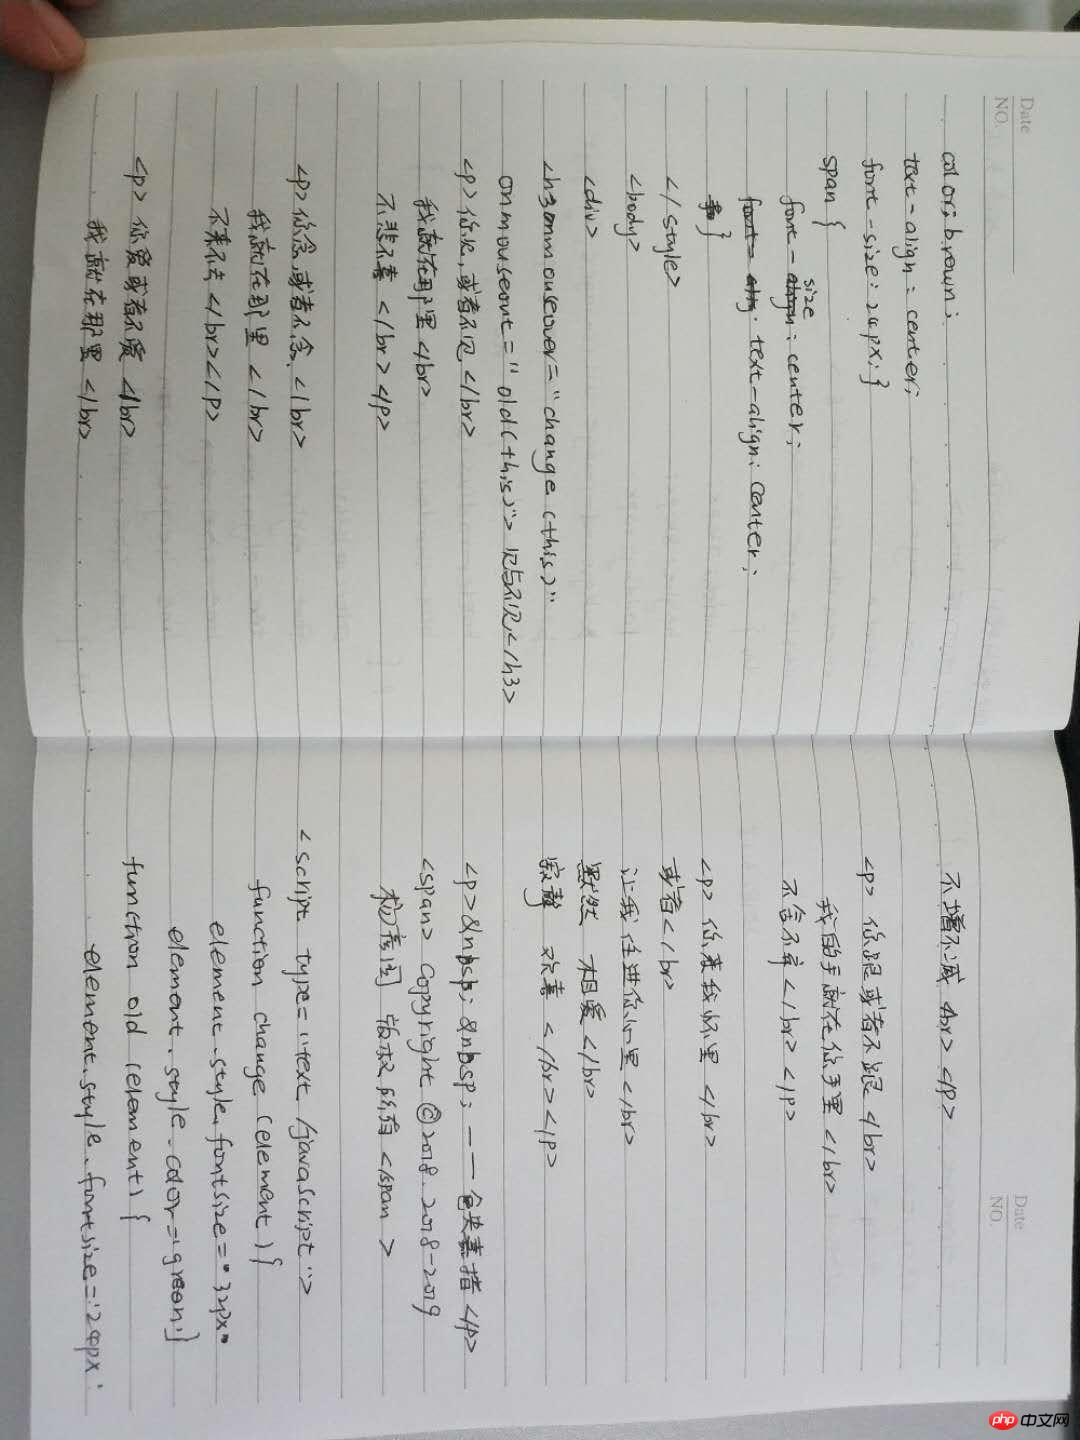 Date
NO.
color: brown;
text-align: center;
font-size: 24px; }
span {
size
font-align: center;
font-alig. text-align: center;
}
</style>
<body>
<div>
<h3 onmouseover="change (this)"
onmouseout="old(this)"> 见与不见</h3>
<p> 你见,或者不见 </br>
我就在那里 </br>
不悲不喜 </br> </p>
<p> 你念,或者不念 </br>
我就在那里 </br>
不来不去 </br> </p>
<p> 你爱或者不爱 </br>
我就在那里 </br>
Date
NO.
不增不减 </br> </p>
<p> 你跟或者不跟 </br>
我的手就在你手里 </br>
不舍不弃 </br> </p>
<p> 你来我怀里 </br>
或者 </br>
让我住进你心里 </br>
默然 相爱 </br>
寂静 欢喜 </br> </p>
<p> &nbsp; &nbsp; ——仓央嘉措 </p>
<span> Copyright @2018.2018-2019
版权所有 </span>
<script type="text/javascript">
function change (element) {
element.style.fontsize="32px"
element.style.color='green'}
function old (element) {
element.style.fontsize='24px'
php 中文网